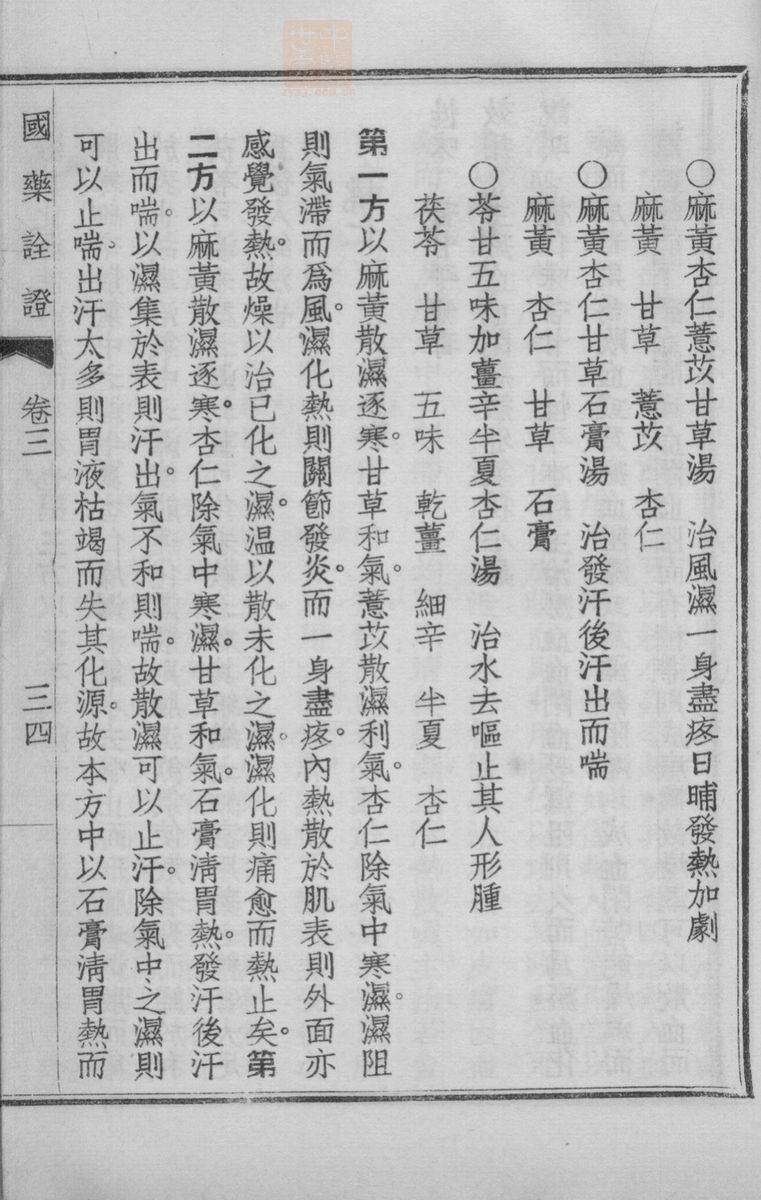 ○麻黃杏仁薏苡甘草湯　治風濕一身盡疼日晡發熱加劇
麻黃　甘草　薏苡　杏仁
○麻黃杏仁甘草石膏湯　治發汗後汗出而喘
麻黃　杏仁　甘草　石膏
○苓甘五味加薑辛半夏杏仁湯　治水去嘔止其人形腫
茯苓　甘草　五味　乾薑　細辛　半夏　杏仁
第一方以麻黃散濕逐寒。甘草和氣。薏苡散濕利氣。杏仁除氣中寒濕。濕阻
則氣滯而爲風。濕化熱則關節發炎。而一身盡疼。內熱散於肌表則外面亦
感覺發熱。故燥以治已化之濕。温以散未化之濕。濕化則痛愈而熱止矣。第
二方以麻黃散濕逐寒。杏仁除氣中寒濕。甘草和氣。石膏淸胃熱。發汗後汗
出而喘。以濕集於表則汗出。氣不和則喘。故散濕可以止汗。除氣中之濕則
可以止喘。出汗太多則胃液枯竭而失其化源。故本方中以石膏淸胃熱而
國藥詮證　卷三　三四